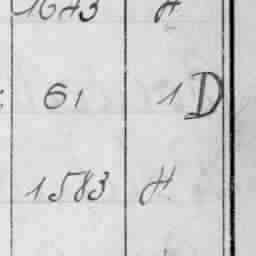 1643 H
61 1 D
1583 H